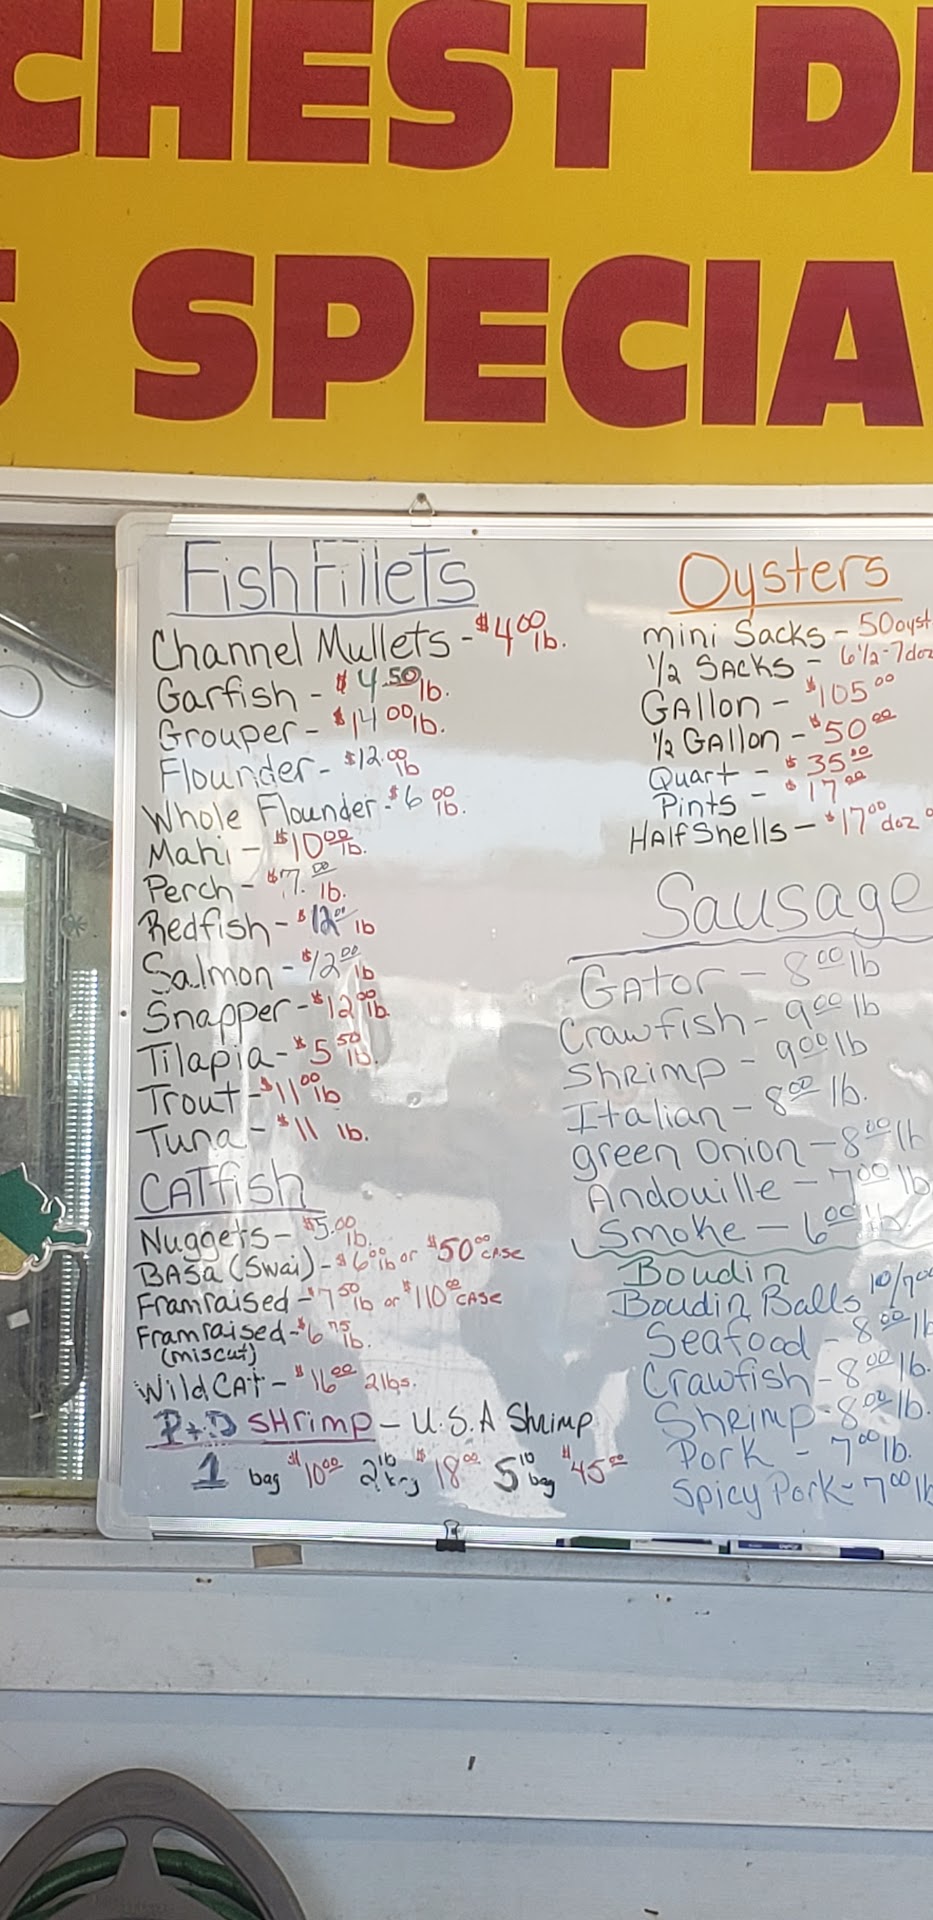 CHEST D
SPECIA
Fish Fillets
Channel Mullets - $4.00 lb.
Garfish - $4.50 lb.
Grouper - $14.00 lb.
Flounder - $12.00 lb
Whole Flounder - $6.00 lb.
Mahi - $10.00 lb.
Perch - $7.00 lb.
Redfish - $12.00 lb
Salmon - $12.00 lb
Snapper - $12.00 lb.
Tilapia - $5.50 lb.
Trout - $11.00 lb
Tuna - $11 lb.
CATfish
Nuggets - $5.00 lb.
BASa (Swai) - $6.00 lb or $50.00 CASE
Framraised - $7.50 lb or $110.00 CASE
Framraised - $6.75 lb.
(miscut)
Wild CAT - $16.00 2lbs.
P+D SHrimp - U.S.A Shrimp
1 bag $10.00 2 lb $18.00 5 lb bag $45.00
Oysters
mini Sacks - 50 oyst
1/2 SACKS - 6 1/2 - 7 doz
GAllon - $105.00
1/2 GAllon - $50.00
Quart - $35.00
Pints - $17.00
HAlf Shells - $17.00 doz
Sausage
GAtor - 8.00 lb
Crawfish - 9.00 lb
Shrimp - 9.00 lb
Italian - 8.00 lb.
green Onion - 8.00 lb
Andouille - 7.00 lb
Smoke - 6.00 lb.
Boudin
Boudin Balls 10/7.00
Seafood - 8.00 lb
Crawfish - 8.00 lb.
Shrimp - 8.00 lb.
Pork - 7.00 lb.
Spicy Pork - 7.00 lb